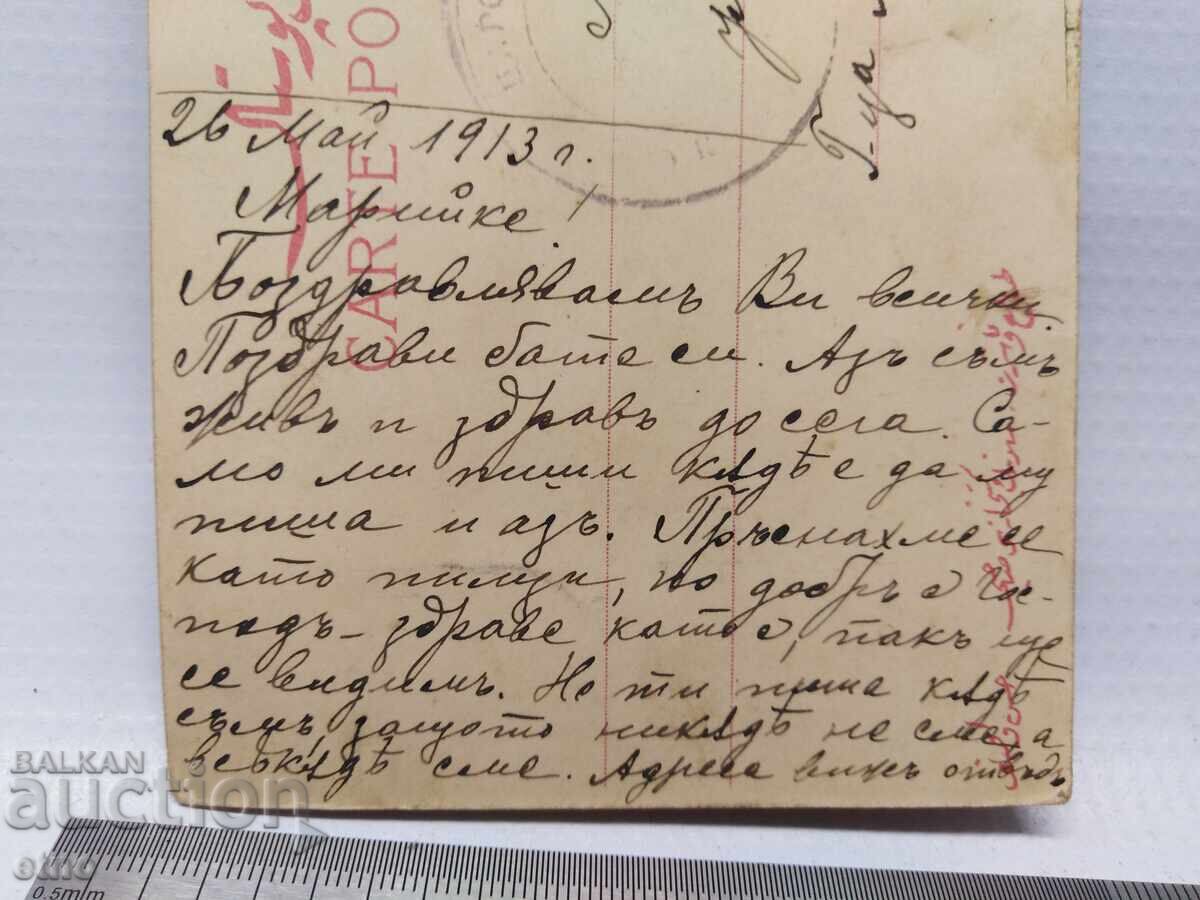 CARTE PO
26 Май 1913 г.
Марийке!
Поздравлявамъ Ви всички.
Поздрави бате си. Азъ съмъ
живъ и здравъ до сега. Са-
мо ми пиши кѫдѣ е да му
пиша и азъ. Пръснахме се
като пилци, но добръ е Го-
сподь здраве като е, пакъ ще
се видимъ. Не ти пиша кѫдѣ
съмъ защото никѫдѣ не сме, а
всѣкѫдѣ сме. Адреса вижъ отвъдъ
BALKAN
auction
etno
0.5mm